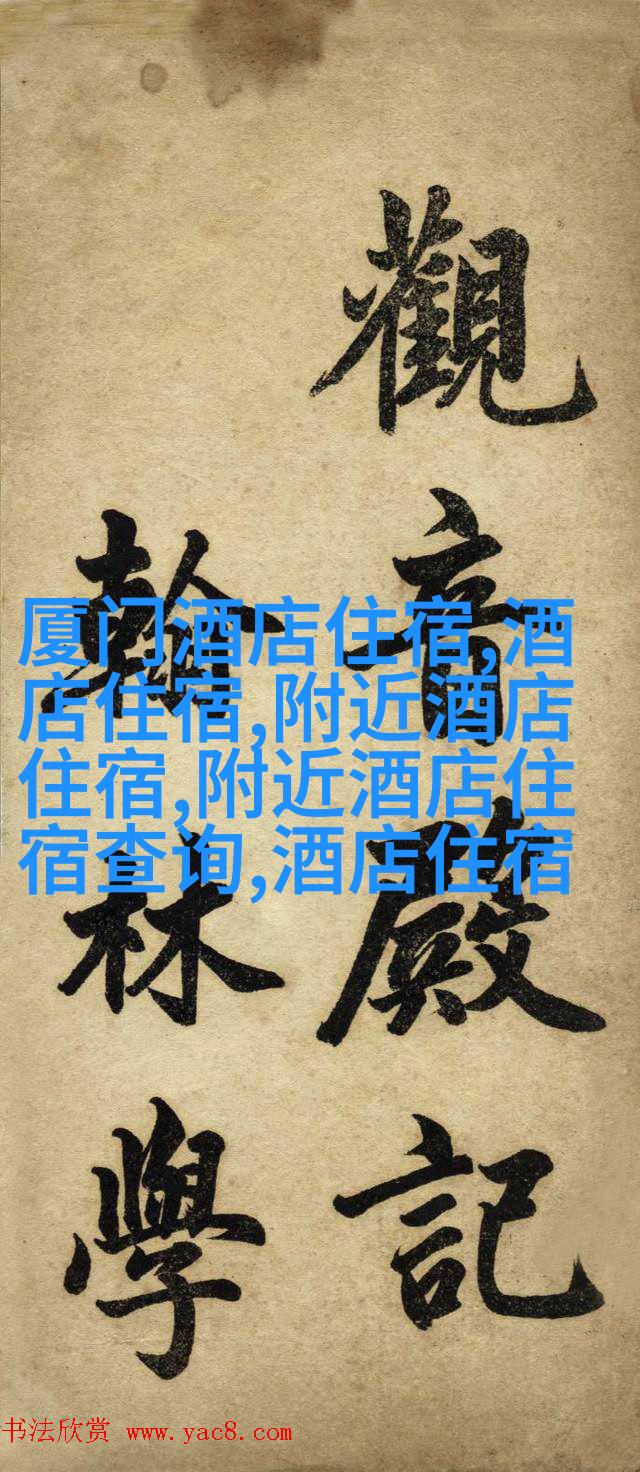 觀音殿記
翰林學
厦门酒店住宿,酒
店住宿,附近酒店
住宿,附近酒店住
宿查询,酒店住宿
书法欣赏 www.yac8.com